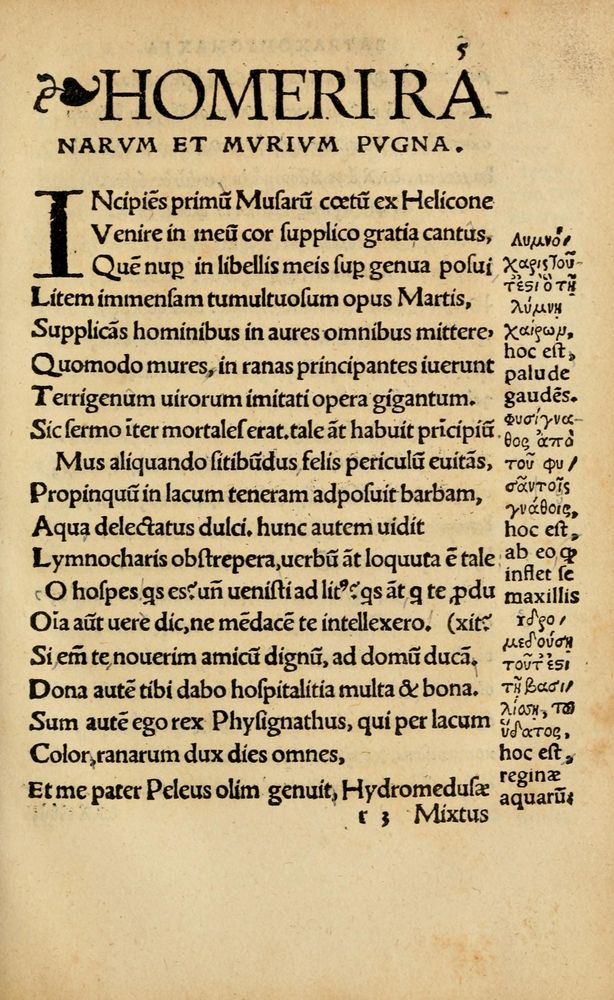 5
HOMERI RA-
NARVM ET MVRIVM PVGNA.
INcipiẽs primũ Musarũ cœtũ ex Helicone
Venire in meũ cor supplico gratia cantus,
Quẽ nuꝑ in libellis meis suꝑ genua posui
Litem immensam tumultuosum opus Martis,
Supplicãs hominibus in aures omnibus mittere,
Quomodo mures, in ranas principantes iuerunt
Terrigenum uirorum imitati opera gigantum.
Sic sermo ĩter mortales erat. tale ãt habuit prĩcipiũ.
Mus aliquando sitibũdus felis periculũ euitãs,
Propinquũ in lacum teneram adposuit barbam,
Aqua delectatus dulci. hunc autem uidit
Lymnocharis obstrepera, uerbũ ãt loquuta ẽ tale
O hospes ꝗs es? uñ uenisti ad litꝰ? ꝗs ãt ꝗ te ꝓdu
Oĩa aũt uere dic, ne mẽdacẽ te intellexero. (xit?
Si em̃ te nouerim amicũ dignũ, ad domũ ducã.
Dona autẽ tibi dabo hospitalitia multa & bona.
Sum autẽ ego rex Physignathus, qui per lacum
Color, ranarum dux dies omnes,
Et me pater Peleus olim genuit, Hydromedusæ
r 3 Mixtus
Λυμνό/
χαρις τοῦ
τέστι ὁ τῇ
λύμνῃ
χαίρωμ,
hoc est,
palude
gaudẽs.
φυσίγνα-
θος ἀπὸ
τοῦ φυ/
σᾶν τοῖς
γνάθοις,
hoc est,
ab eo ꝙ
inflet se
maxillis
ὑδρο/
μεδούσῃ
τοῦτ ἐστι
τῇ βασι/
λίσσῃ, τοῦ
ὕδατος,
hoc est,
reginæ
aquarũ.